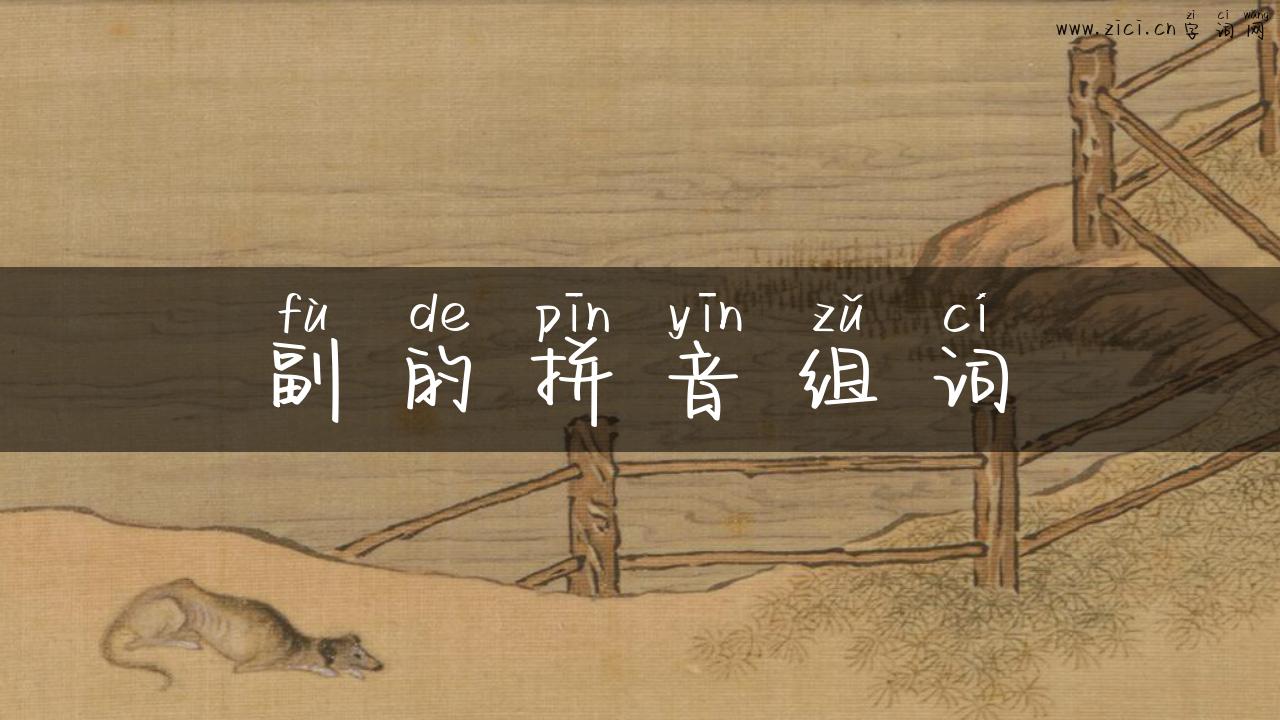 zì cí wǎng
www.zici.cn 字词网
fù de pīn yīn zǔ cí
副的拼音组词